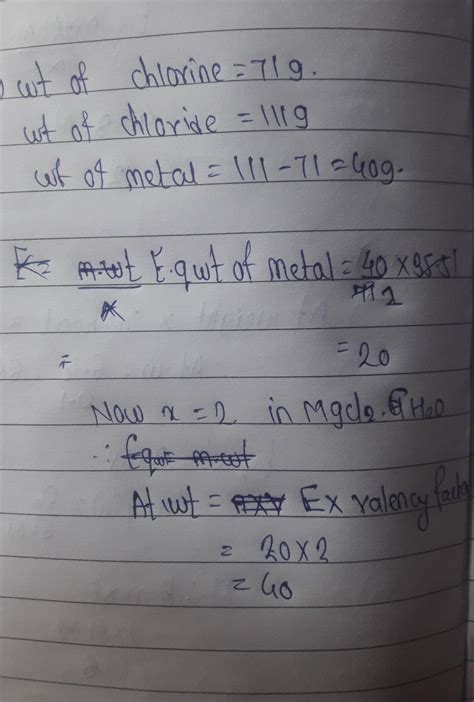 wt of chlorine = 71g.
wt of chloride = 111g
wt of metal = 111 - 71 = 40g.
E = m.wt E.qwt of metal = 40 × 35.5
x 71 2
= = 20
Now x = 2 in MgCl2. 6H2O
∴ Eqwt m.wt
At wt = E x valency factor
= 20 x 2
= 40